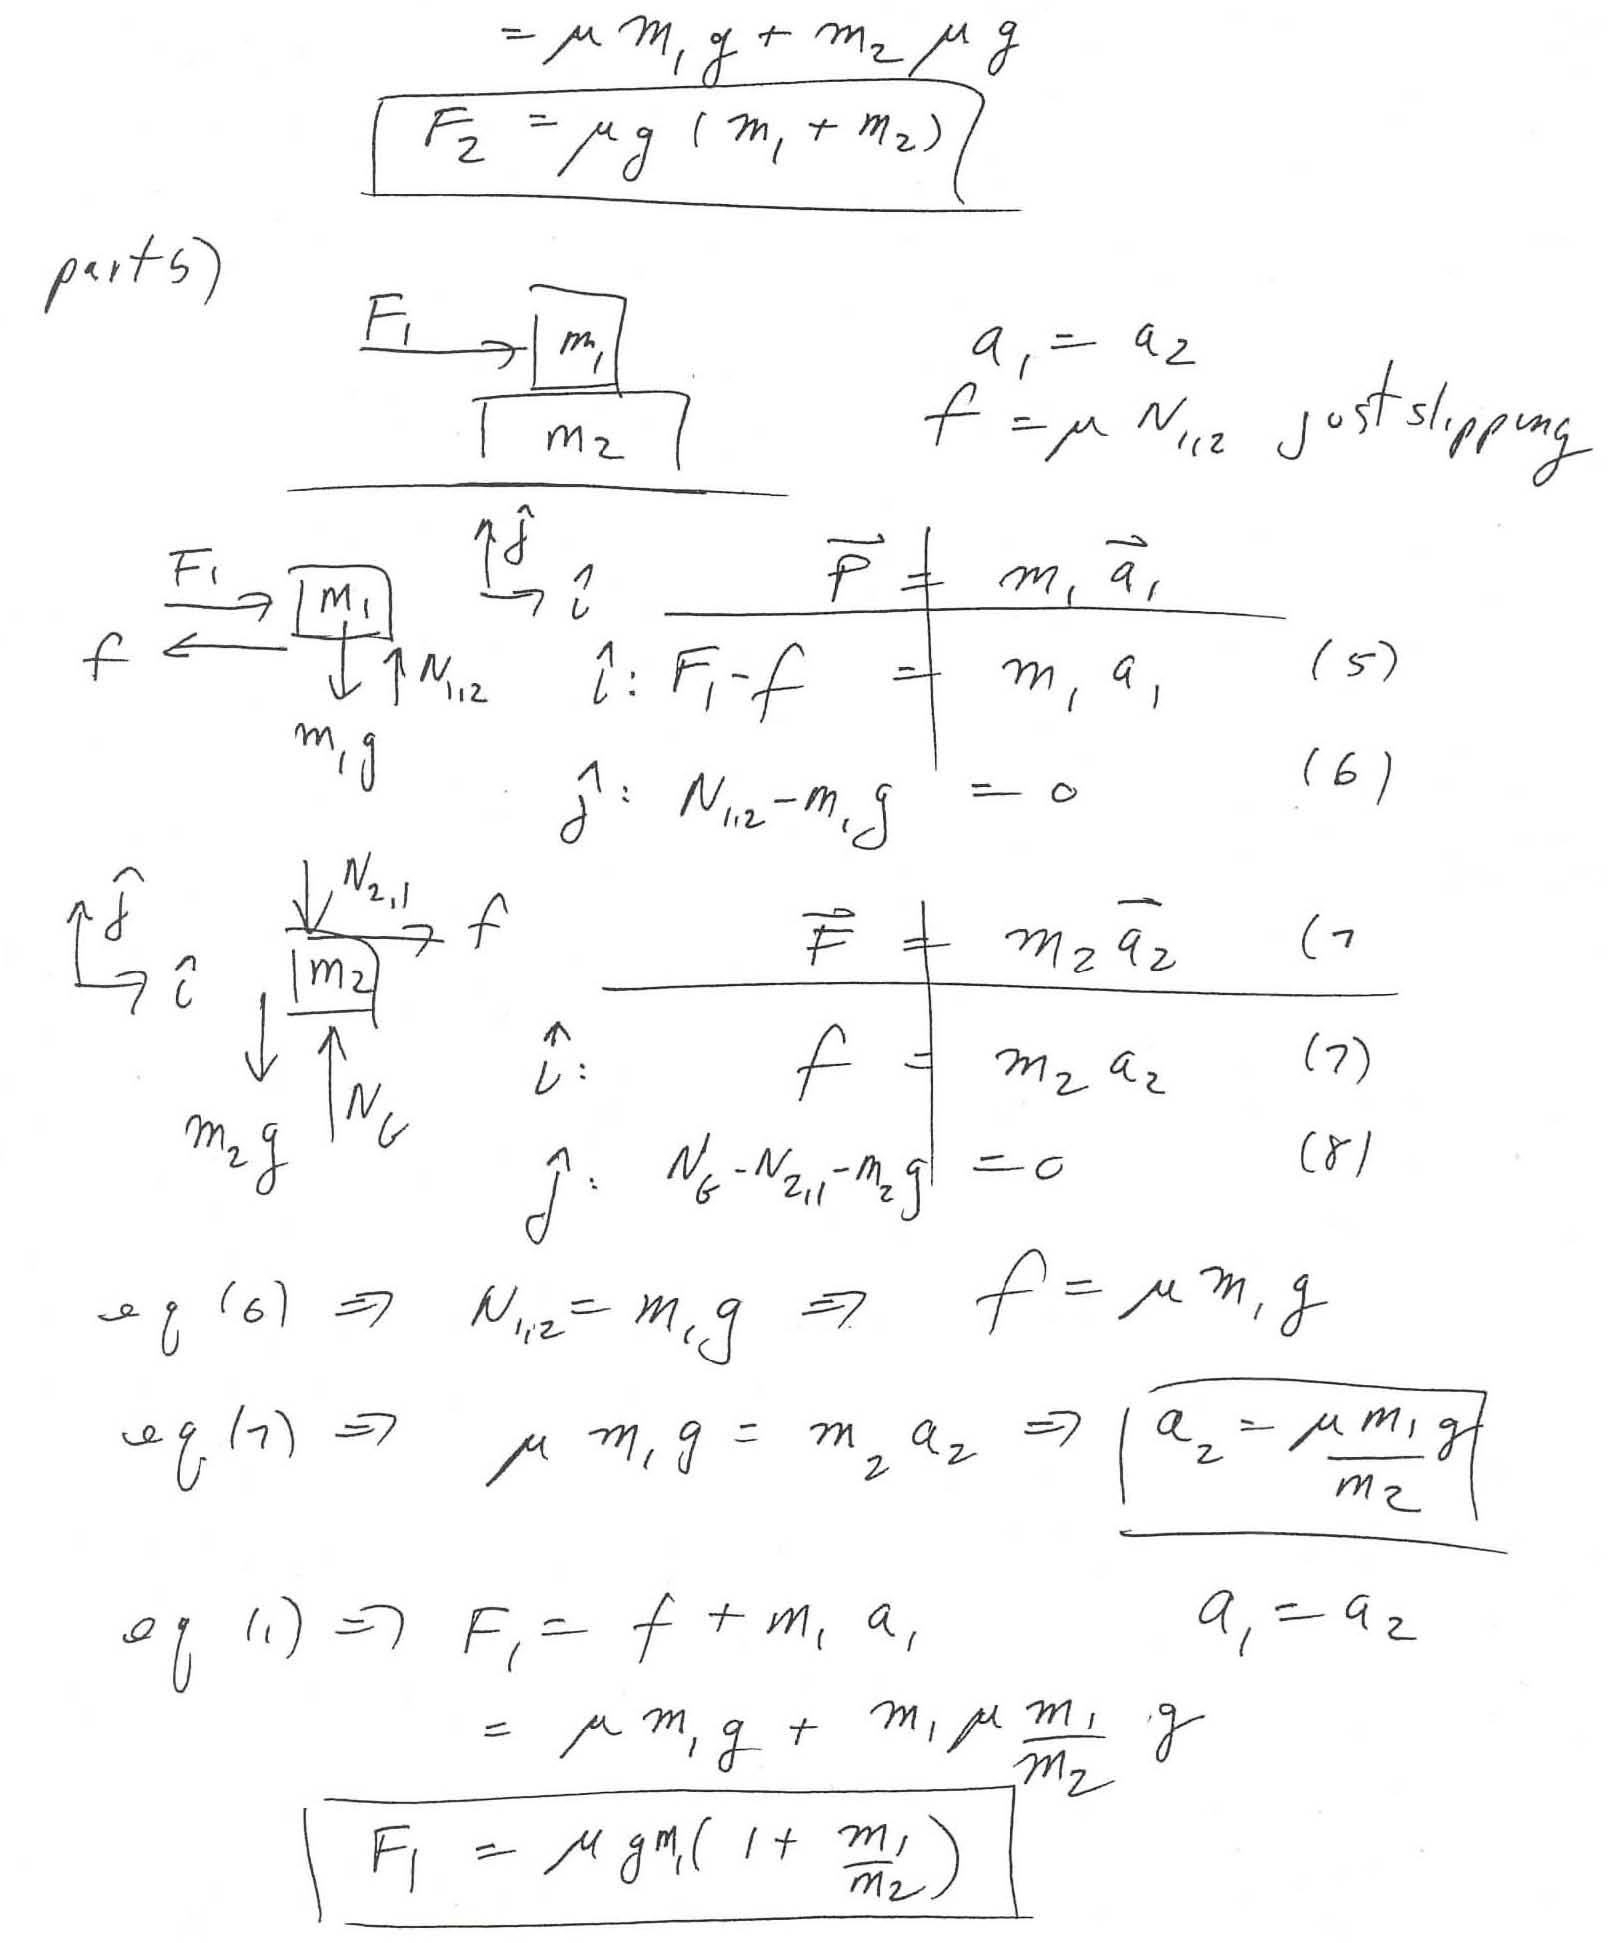 = μ m₁ g + m₂ μ g
F₂ = μ g (m₁ + m₂)
part b)
F₁ m₁ a₁ = a₂
m₂ f = μ N₁,₂ just slipping
F₁ m₁ ĵ î F⃗ = m₁ a⃗₁
f N₁,₂ î: F₁ - f = m₁ a₁ (5)
m₁g ĵ: N₁,₂ - m₁g = 0 (6)
ĵ î N₂,₁ f m₂ F⃗ = m₂ a⃗₂ (7
î: f = m₂ a₂ (7)
m₂g N_G ĵ: N_G - N₂,₁ - m₂g = 0 (8)
eq (6) ⇒ N₁,₂ = m₁g ⇒ f = μ m₁ g
eq (7) ⇒ μ m₁ g = m₂ a₂ ⇒ a₂ = μ m₁/m₂ g
eq (1) ⇒ F₁ = f + m₁ a₁ a₁ = a₂
= μ m₁ g + m₁ μ m₁/m₂ g
F₁ = μ g m₁ (1 + m₁/m₂)